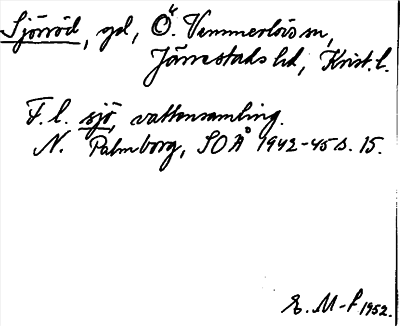 Sjörröd, gd, Ö. Vemmerlövs sn,
Järrestads hd, Krist. l.
F. l. sjö, vattensamling.
N. Palmborg, SOÅ 1942-45 s. 15.
E. M-f 1952.